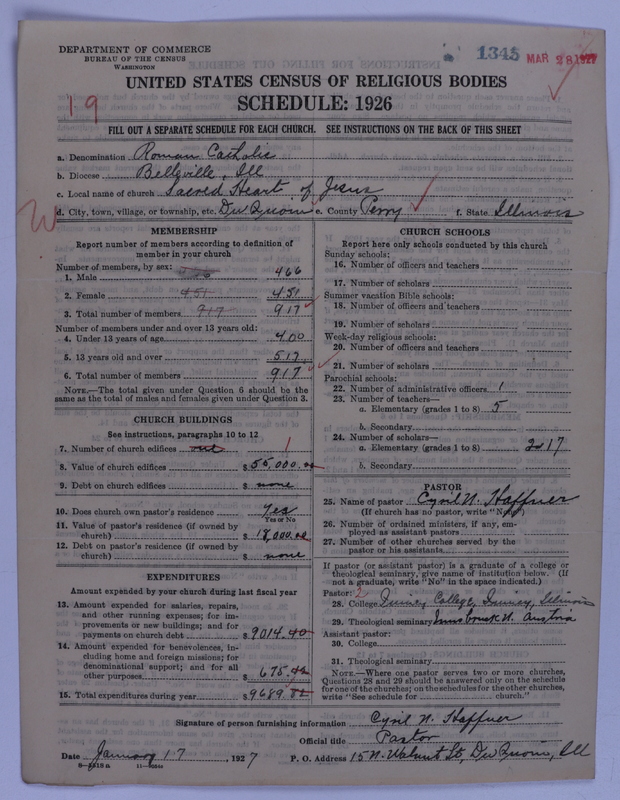 DEPARTMENT OF COMMERCE
BUREAU OF THE CENSUS
WASHINGTON
1345
MAR 28 1927
UNITED STATES CENSUS OF RELIGIOUS BODIES
19
SCHEDULE: 1926
FILL OUT A SEPARATE SCHEDULE FOR EACH CHURCH. SEE INSTRUCTIONS ON THE BACK OF THIS SHEET
a. Denomination Roman Catholic
b. Diocese Bellville, Ill
c. Local name of church Sacred Heart of Jesus
d. City, town, village, or township, etc. Du Quoin e. County Perry f. State Illinois
MEMBERSHIP
Report number of members according to definition of member in your church
Number of members, by sex:
1. Male 466
2. Female 451 451
3. Total number of members 917 917
Number of members under and over 13 years old:
4. Under 13 years of age 400
5. 13 years old and over 517
6. Total number of members 917
NOTE.—The total given under Question 6 should be the
same as the total of males and females given under Question 3.
CHURCH BUILDINGS
See instructions, paragraphs 10 to 12
7. Number of church edifices one 1
8. Value of church edifices $ 55,000.00
9. Debt on church edifices $ none
10. Does church own pastor's residence Yes
Yes or No
11. Value of pastor's residence (if owned by
church) $ 18,000.00
12. Debt on pastor's residence (if owned by
church) $ none
EXPENDITURES
Amount expended by church during last fiscal year
13. Amount expended for salaries, repairs,
and other running expenses; for im-
provements or new buildings; and for
payments on church debt $ 9014.40
14. Amount expended for benevolences, in-
cluding home and foreign missions; for
denominational support; and for all
other purposes $ 675.42
15. Total expenditures during year $ 9689.82
CHURCH SCHOOLS
Report here only schools conducted by this church
Sunday schools:
16. Number of officers and teachers
17. Number of scholars
Summer vacation Bible schools:
18. Number of officers and teachers
19. Number of scholars
Week-day religious schools:
20. Number of officers and teachers
21. Number of scholars
Parochial schools:
22. Number of administrative officers 1
23. Number of teachers—
a. Elementary (grades 1 to 8) 5
b. Secondary
24. Number of scholars—
a. Elementary (grades 1 to 8) 217
b. Secondary
PASTOR
25. Name of pastor Cyril N. Haffner
(If church has no pastor, write "No")
26. Number of ordained ministers, if any, em-
ployed as assistant pastors
27. Number of other churches served by the
pastor or his assistants
If pastor (or assistant pastor) is a graduate of a college or
theological seminary, give name of institution below. (If
not a graduate, write "No" in the space indicated.)
Pastor: 2
28. College Quincy College, Quincy, Illinois
29. Theological seminary Innsbruck U. Austria
Assistant pastor:
30. College
31. Theological seminary
NOTE.—Where one pastor serves two or more churches,
Questions 28 and 29 should be answered only on the schedule
for one of the churches; on the schedules for the other churches,
write "See schedule for church."
Signature of person furnishing information Cyril N. Haffner
Official title Pastor
Date January 17, 1927 P. O. Address 15 N. Walnut St, Du Quoin, Ill